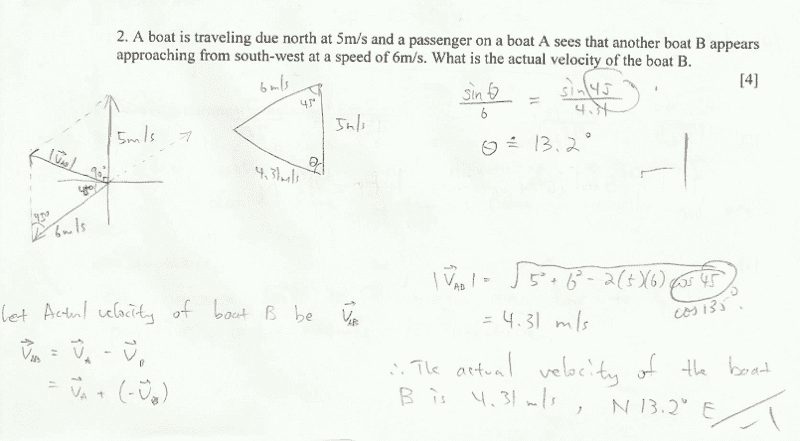 2. A boat is traveling due north at 5m/s and a passenger on a boat A sees that another boat B appears
approaching from south-west at a speed of 6m/s. What is the actual velocity of the boat B.
[4]
6m/s
45°
5m/s
4.31m/s
θ
5m/s
|V⃗AB|
90°
45°
45°
6m/s
sin θ / 6 = sin 45 / 4.31
θ ≐ 13.2°
-1
|V⃗AB| = √5² + 6² - 2(5)(6) cos 45
cos 135°.
= 4.31 m/s
Let Actual velocity of boat B be V⃗AB
V⃗AB = V⃗A - V⃗B
= V⃗A + (-V⃗B)
∴ The actual velocity of the boat
B is 4.31 m/s, N 13.2° E
-1